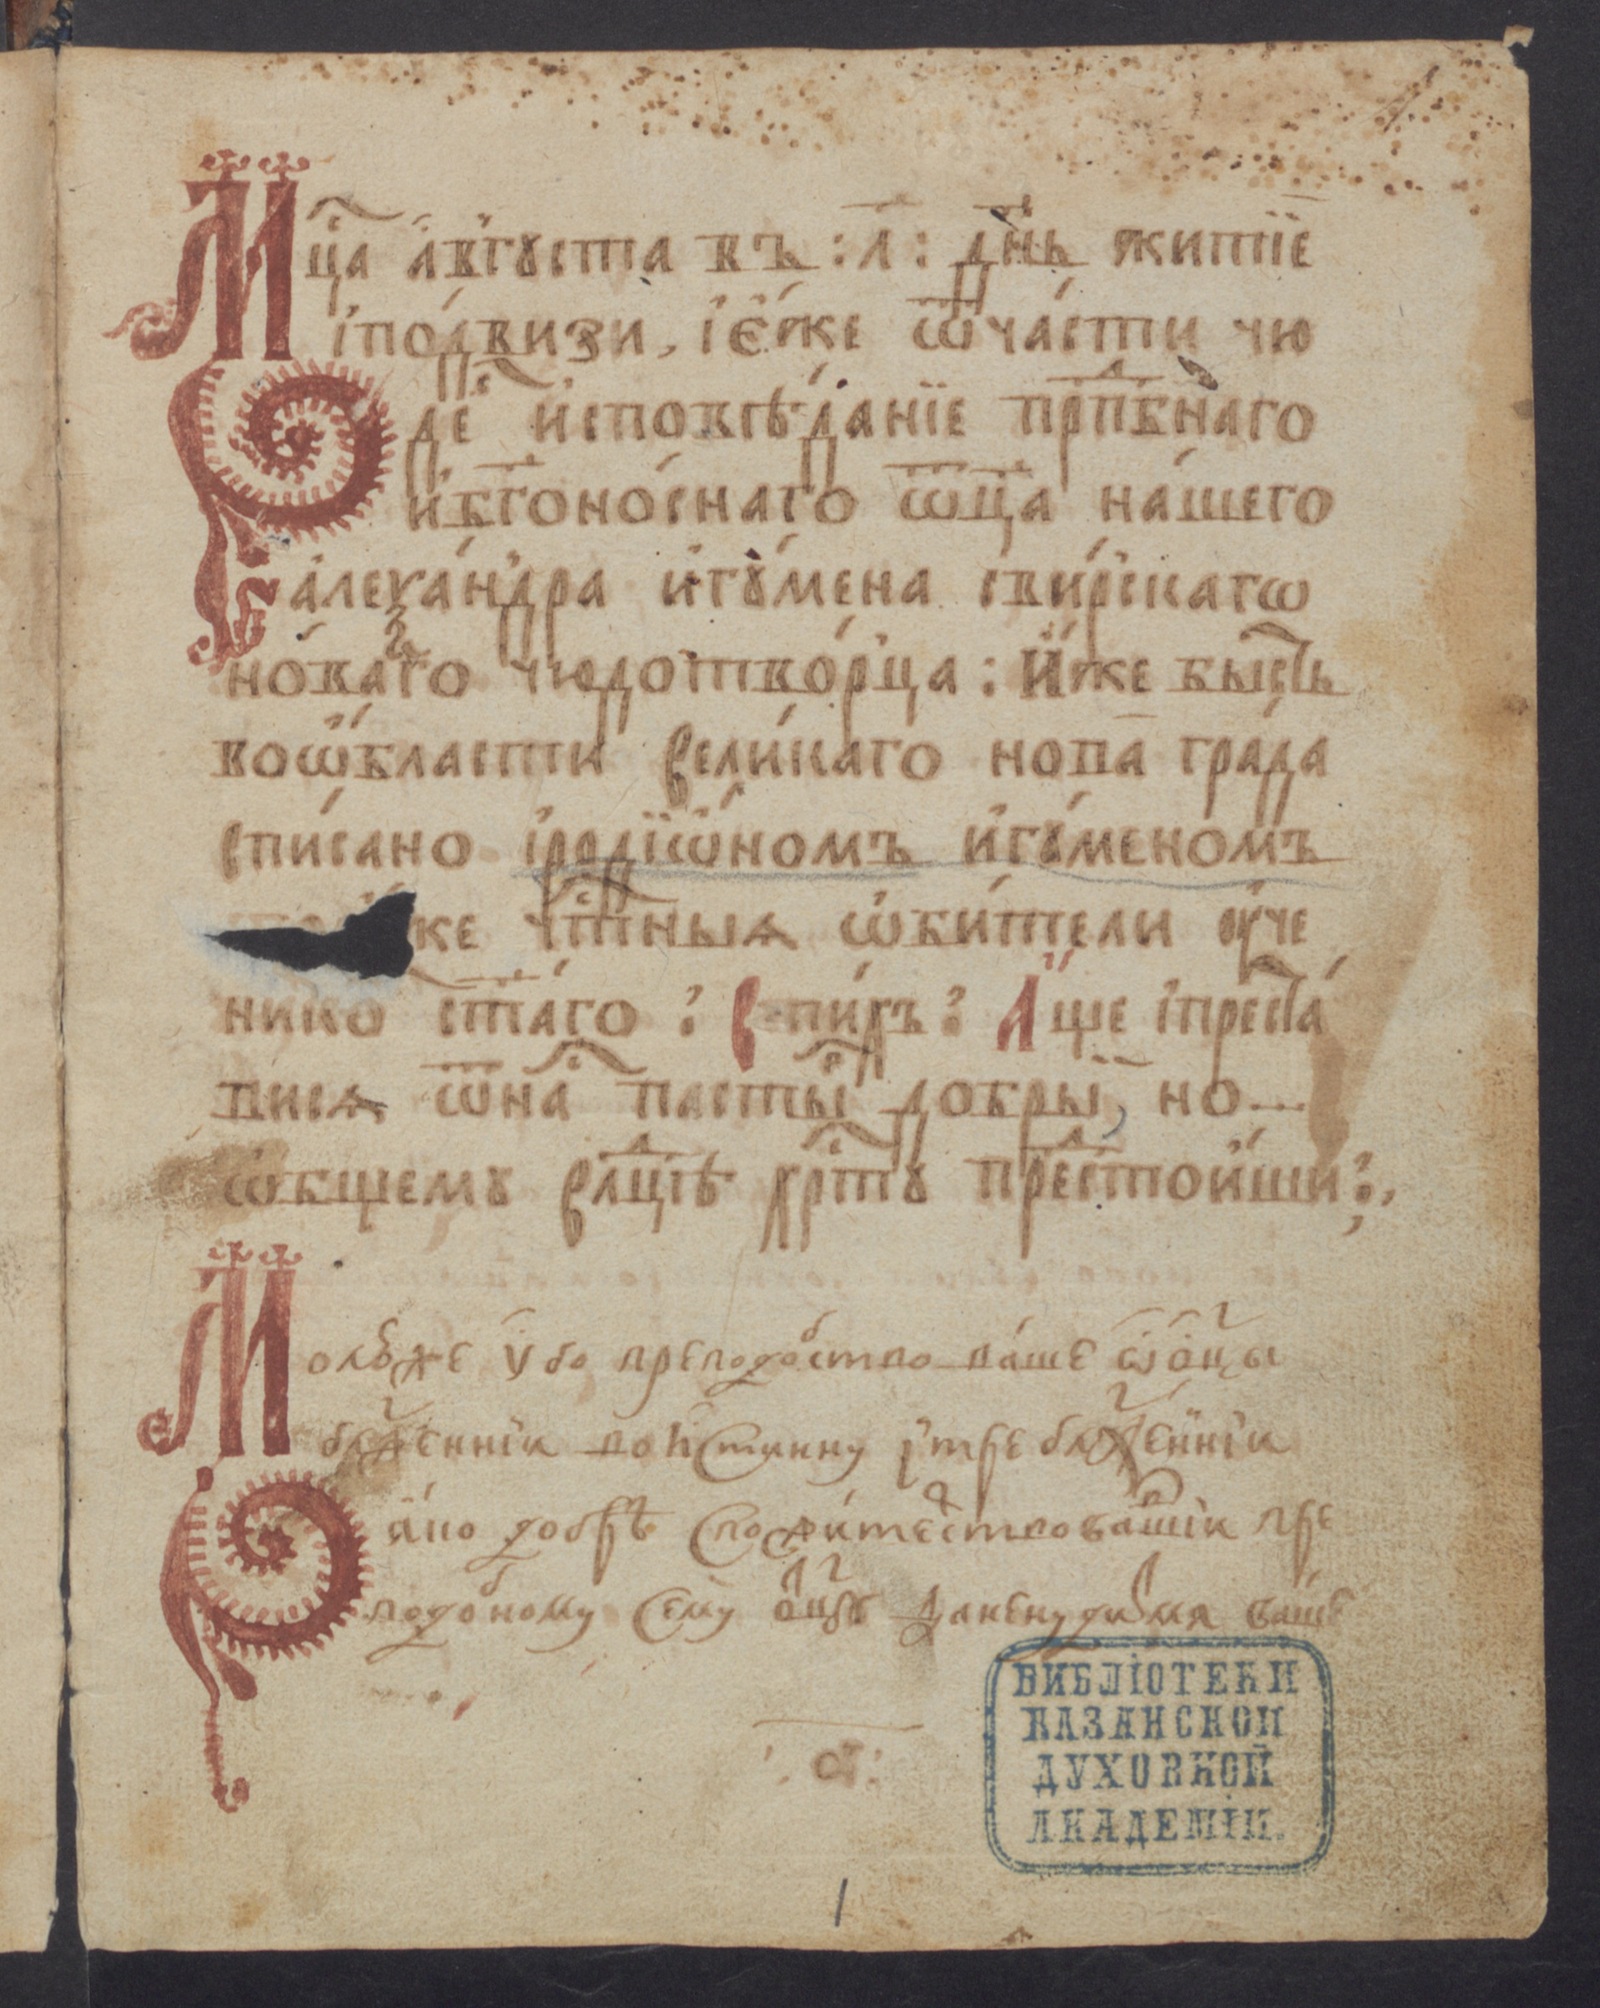 Мц҃а а҆́вгꙋста въ : л҃ : д҃нь житїе
і҆по́двизи, і҆є҆́же ѿча́сти чю
де҇ и҆сповѣ́данїе прп҇бнаго
и҆бг҃оно́снаго ѿц҃а на́шего
а҆леѯа́ндра и҆гꙋ́мена сви́рскагѡ
но́ваго чюдотво́рца : И҆́же бысть
воѡ҆́бласти вели́каго нова гра́да
спи́сано і҆родїѡ́номъ и҆гꙋ́меномъ
же ч҇тныѧ ѡ҆би́тели ᲂу҆че
нико ст҃а́го : в пи́рь : А҆́ще і҆преста́
висѧ ѿна҇ пасты̑р добры́й, но
ѡ҆́бщемꙋ влⷣцѣ хр҇тꙋ̀ прⷣестои́ши :,
Молю́ же у҆́бо преподо́бство ва́ше ѽ ѻ҆тцы
блаже́ннїи вои́стинну і҆требlаже́ннїи
ꙗ҆́ко до́брѣ спожи́те́лствовавшїи пре
подо́бному сему̀ ѻ҆тцу̀ да не ну́димѧ ва́ше
: а҃ :
1
БИБЛІОТЕКИ
КАЗАНСКОЙ
ДУХОВНОЙ
АКАДЕМІИ.